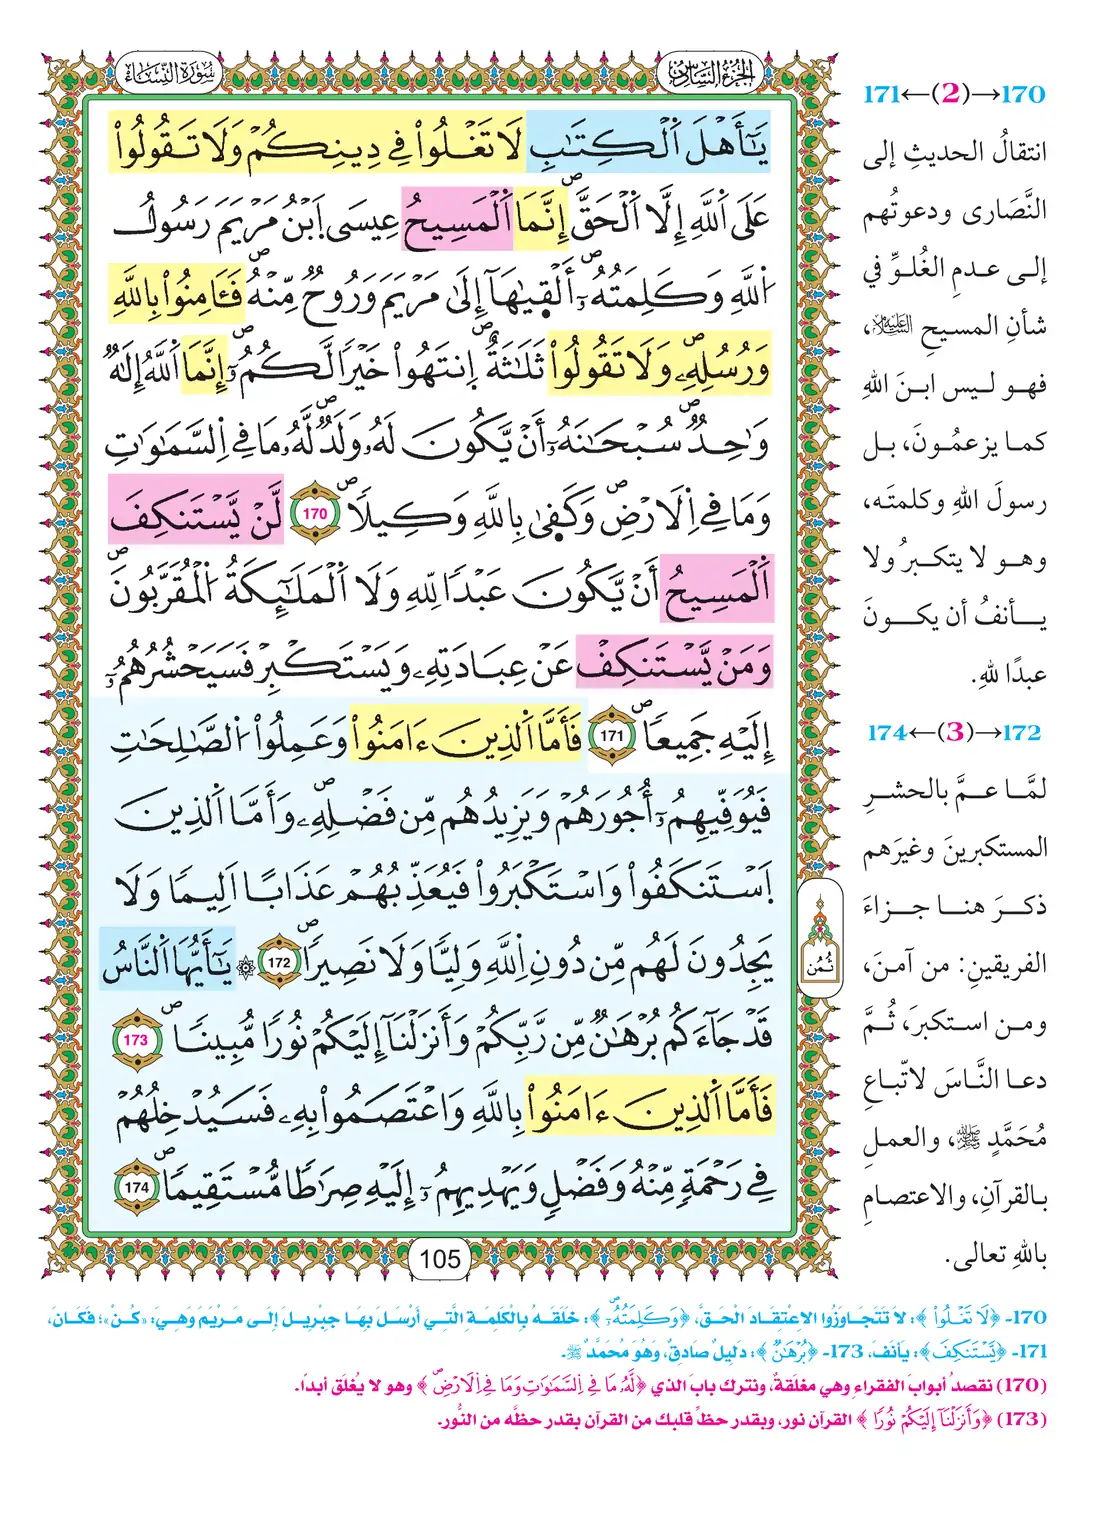 سُورَةُ النِّسَاءِ
الجُزْءُ السَّادِسُ
يَٰٓأَهْلَ اَ۬لْكِتَٰبِ لَا تَغْلُواْ فِے دِينِكُمْ وَلَا تَقُولُواْ
عَلَى اَ۬للَّهِ إِلَّا اَ۬لْحَقَّۖ إِنَّمَا اَ۬لْمَسِيحُ عِيسَى اَ۪بْنُ مَرْيَمَ رَسُولُ
اُ۬للَّهِ وَكَلِمَتُهُۥٓۖ أَلْقَيٰهَآ إِلَىٰ مَرْيَمَ وَرُوحٞ مِّنْهُۖ فَـَٔامِنُواْ بِاللَّهِ
وَرُسُلِهِۦۖ وَلَا تَقُولُواْ ثَلَٰثَةٌۖ اِ۪نتَهُواْ خَيْراٗ لَّكُمُۥٓۖ إِنَّمَا اَ۬للَّهُ إِلَٰهٞ
وَٰحِدٞۖ سُبْحَٰنَهُۥٓ أَنْ يَّكُونَ لَهُۥ وَلَدٞۖ لَّهُۥ مَا فِے اِ۬لسَّمَٰوَٰتِ
وَمَا فِے اِ۬لَارْضِۖ وَكَف۪ىٰ بِاللَّهِ وَكِيلاٗۖ 170 لَّنْ يَّسْتَنكِفَ
اَ۬لْمَسِيحُ أَنْ يَّكُونَ عَبْداٗ لِّلهِ وَلَا اَ۬لْمَلَٰٓئِكَةُ اُ۬لْمُقَرَّبُونَۖ
وَمَنْ يَّسْتَنكِفْ عَنْ عِبَادَتِهِۦ وَيَسْتَكْبِرْ فَسَيَحْشُرُهُمُۥٓ
إِلَيْهِ جَمِيعاٗۖ 171 فَأَمَّا اَ۬لذِينَ ءَامَنُواْ وَعَمِلُواْ اُ۬لصَّٰلِحَٰتِ
فَيُوَفِّيهِمُۥٓ أُجُورَهُمْ وَيَزِيدُهُم مِّن فَضْلِهِۦۖ وَأَمَّا اَ۬لذِينَ
اَ۪سْتَنكَفُواْ وَاسْتَكْبَرُواْ فَيُعَذِّبُهُمْ عَذَاباً اَلِيماٗ وَلَا
يَجِدُونَ لَهُم مِّن دُونِ اِ۬للَّهِ وَلِيّاٗ وَلَا نَصِيراٗۖ 172 ۞ يَٰٓأَيُّهَا اَ۬لنَّاسُ
قَدْ جَآءَكُم بُرْهَٰنٞ مِّن رَّبِّكُمْ وَأَنزَلْنَآ إِلَيْكُمْ نُوراٗ مُّبِيناٗۖ 173
فَأَمَّا اَ۬لذِينَ ءَامَنُواْ بِاللَّهِ وَاعْتَصَمُواْ بِهِۦ فَسَيُدْخِلُهُمْ
فِے رَحْمَةٖ مِّنْهُ وَفَضْلٖ وَيَهْدِيهِمُۥٓ إِلَيْهِ صِرَٰطاٗ مُّسْتَقِيماٗۖ 174
ثُمُن
105
170→(2)←171
انتقالُ الحديثِ إلى
النَّصَارى ودعوتُهم
إلى عدمِ الغُلوِّ في
شأنِ المسيحِ عليه السلام،
فهو ليس ابنَ اللهِ
كما يزعمُونَ، بل
رسولَ اللهِ وكلمتَه،
وهو لا يتكبرُ ولا
يأنفُ أن يكونَ
عبدًا للهِ.
172→(3)←174
لمَّا عمَّ بالحشرِ
المستكبرينَ وغيرَهم
ذكرَ هنا جزاءَ
الفريقينِ: من آمنَ،
ومن استكبرَ، ثُمَّ
دعا النَّاسَ لاتّباعِ
مُحَمَّدٍ ﷺ، والعملِ
بالقرآنِ، والاعتصامِ
باللهِ تعالى.
170- ﴿لَا تَغْلُواْ﴾: لاَ تَتَجَاوَزُوا الاعْتِقَادَ الْحَقَّ، ﴿وَكَلِمَتُهُۥٓۖ﴾: خَلَقَهُ بِالْكَلِمَةِ الَّتِي أَرْسَلَ بِهَا جِبْرِيلَ إِلَى مَرْيَمَ وَهِيَ: «كُنْ»؛ فَكَانَ،
171- ﴿يَّسْتَنكِفَ﴾: يَأنَفَ، 173- ﴿بُرْهَٰنٞ﴾: دَلِيلٌ صَادِقٌ، وَهُوَ مُحَمَّدٌ ﷺ.
(170) نقصدُ أبوابَ الفقراءِ وهي مغلقةٌ، ونترك بابَ الذي ﴿لَّهُۥ مَا فِے اِ۬لسَّمَٰوَٰتِ وَمَا فِے اِ۬لَارْضِۖ﴾ وهو لا يُغلَق أبدًا.
(173) ﴿وَأَنزَلْنَآ إِلَيْكُمْ نُوراٗ﴾ القرآن نور، وبقدر حظِّ قلبك من القرآن بقدر حظِّه من النُّور.